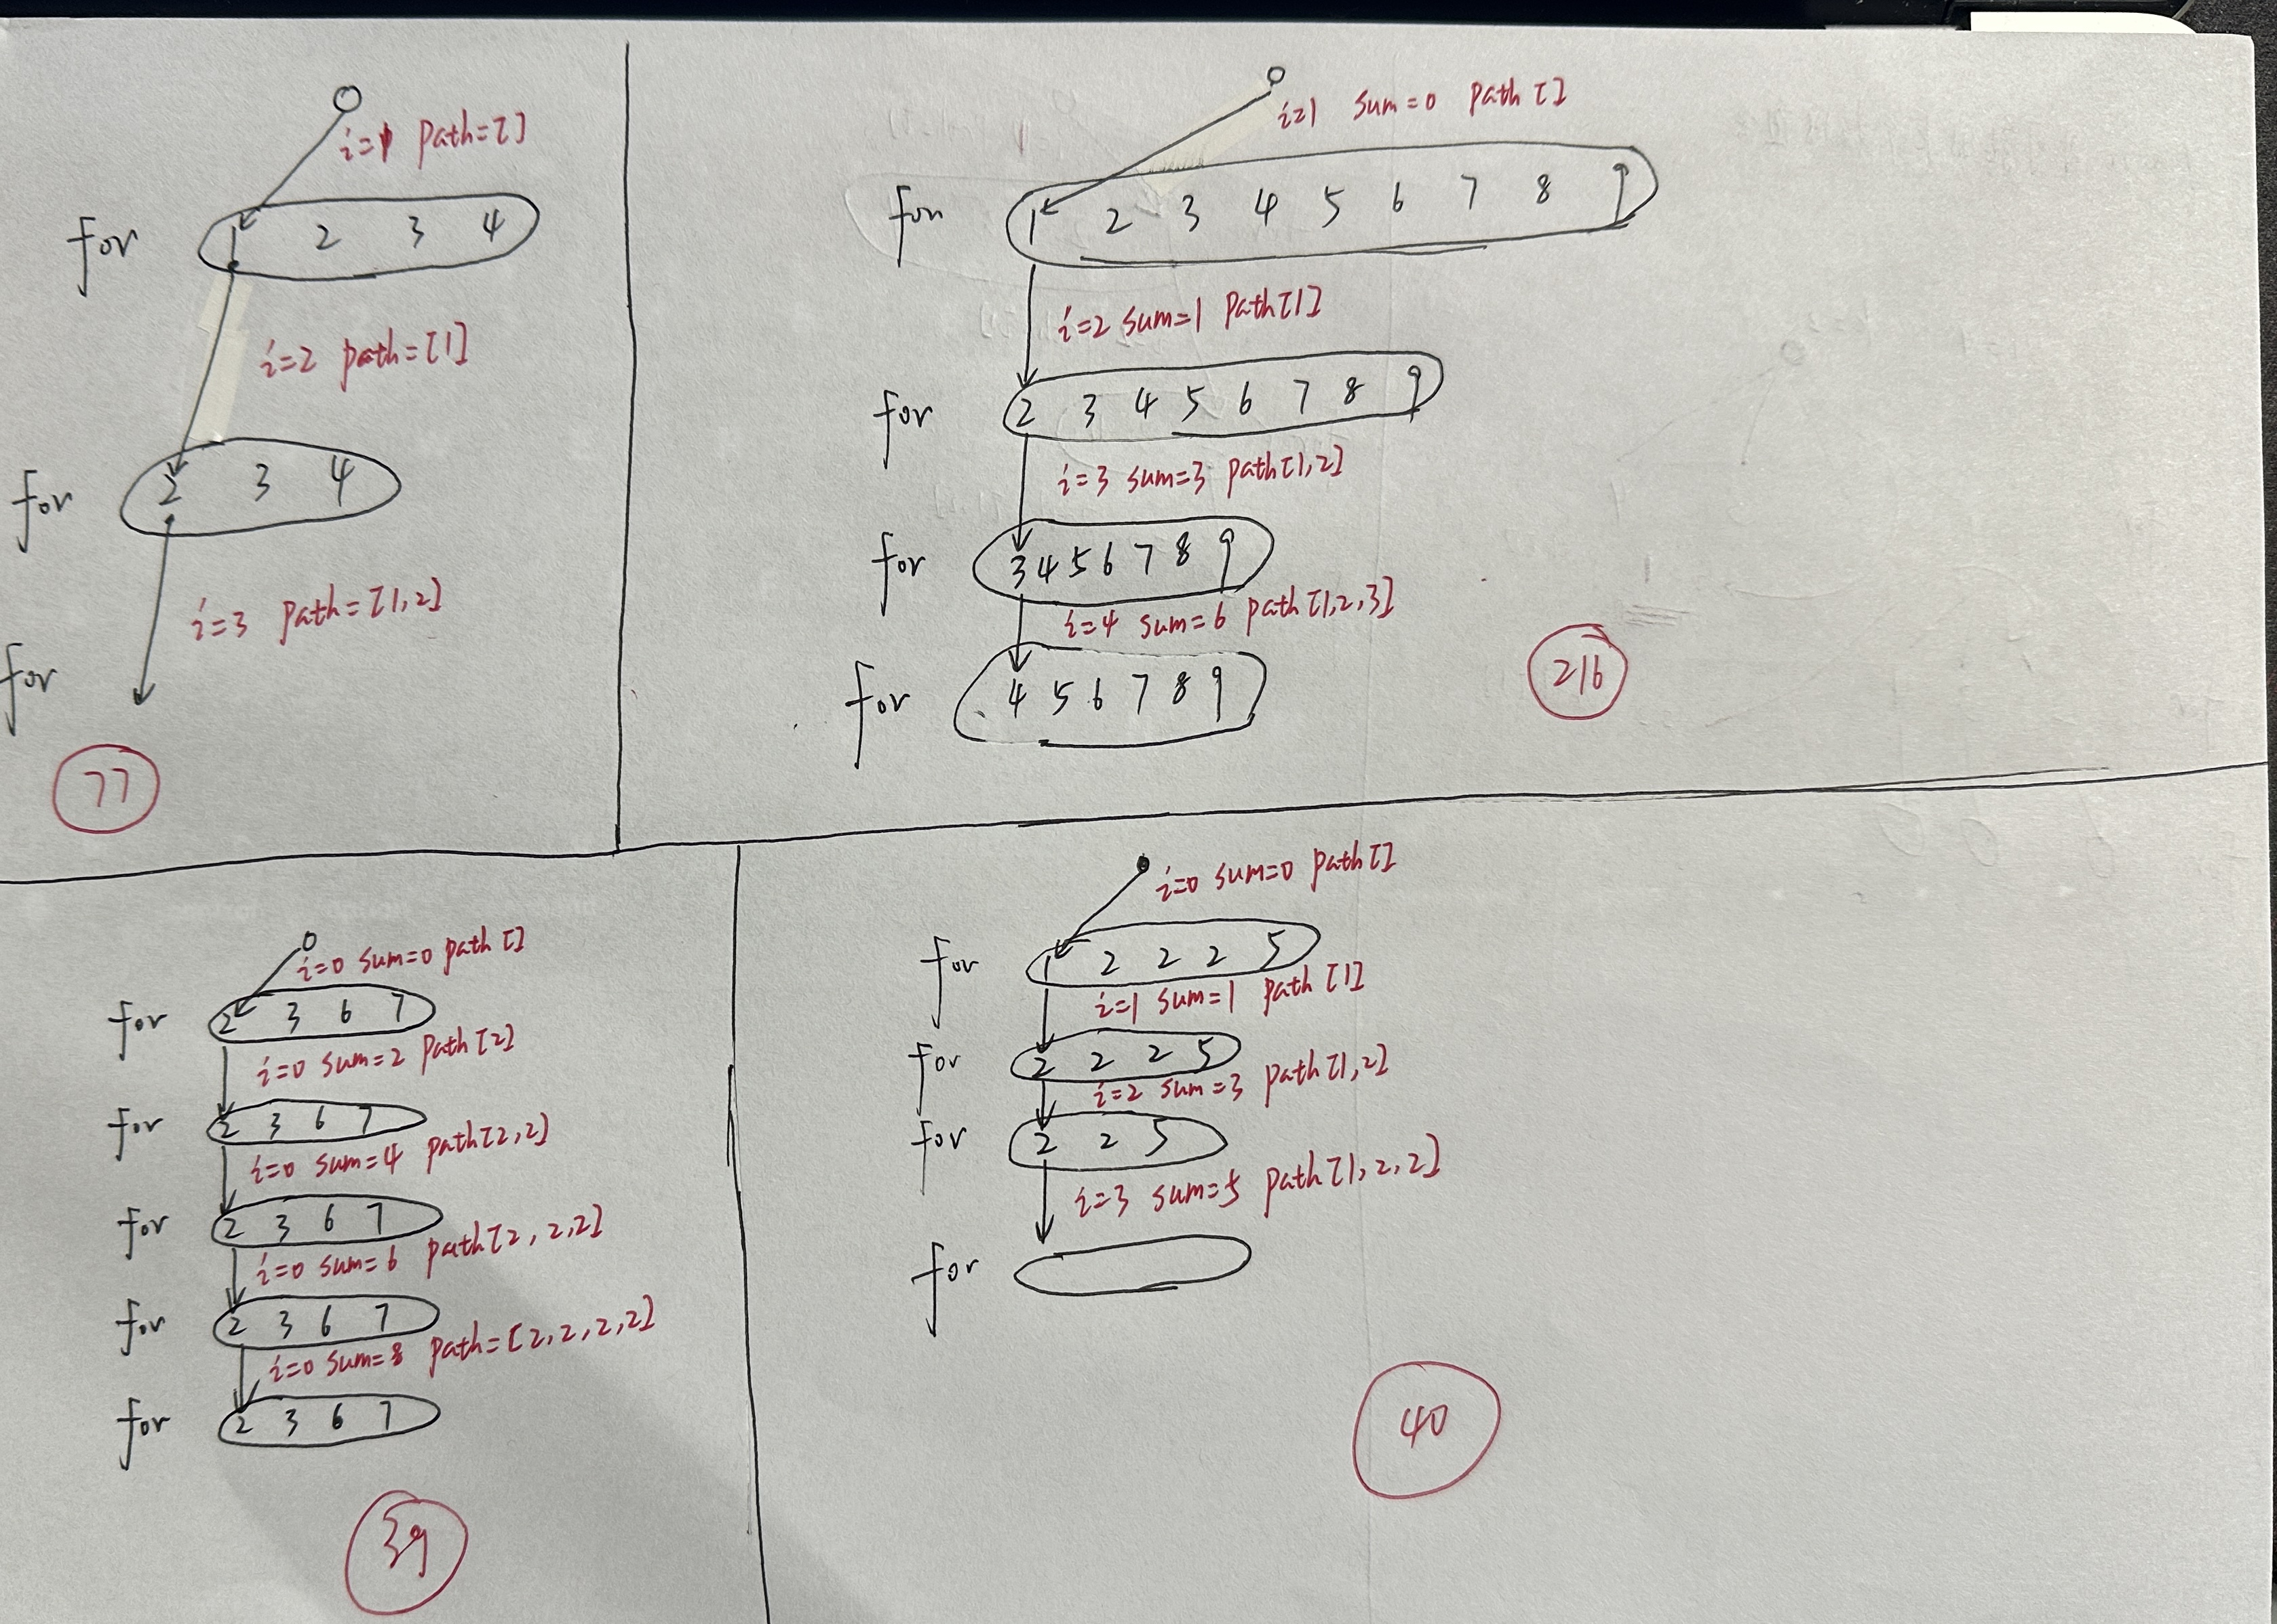 i=1 path=[]
for 1 2 3 4
i=2 path=[1]
for 2 3 4
i=3 path=[1,2]
for
77
i=1 sum=0 path[]
for 1 2 3 4 5 6 7 8 9
i=2 sum=1 path[1]
for 2 3 4 5 6 7 8 9
i=3 sum=3 path[1,2]
for 3 4 5 6 7 8 9
i=4 sum=6 path[1,2,3]
for 4 5 6 7 8 9
216
i=0 sum=0 path[]
for 2 3 6 7
i=0 sum=2 path[2]
for 2 3 6 7
i=0 sum=4 path[2,2]
for 2 3 6 7
i=0 sum=6 path[2,2,2]
for 2 3 6 7
i=0 sum=8 path=[2,2,2,2]
for 2 3 6 7
39
i=0 sum=0 path[]
for 1 2 2 2 5
i=1 sum=1 path[1]
for 2 2 2 5
i=2 sum=3 path[1,2]
for 2 2 5
i=3 sum=5 path[1,2,2]
for
40